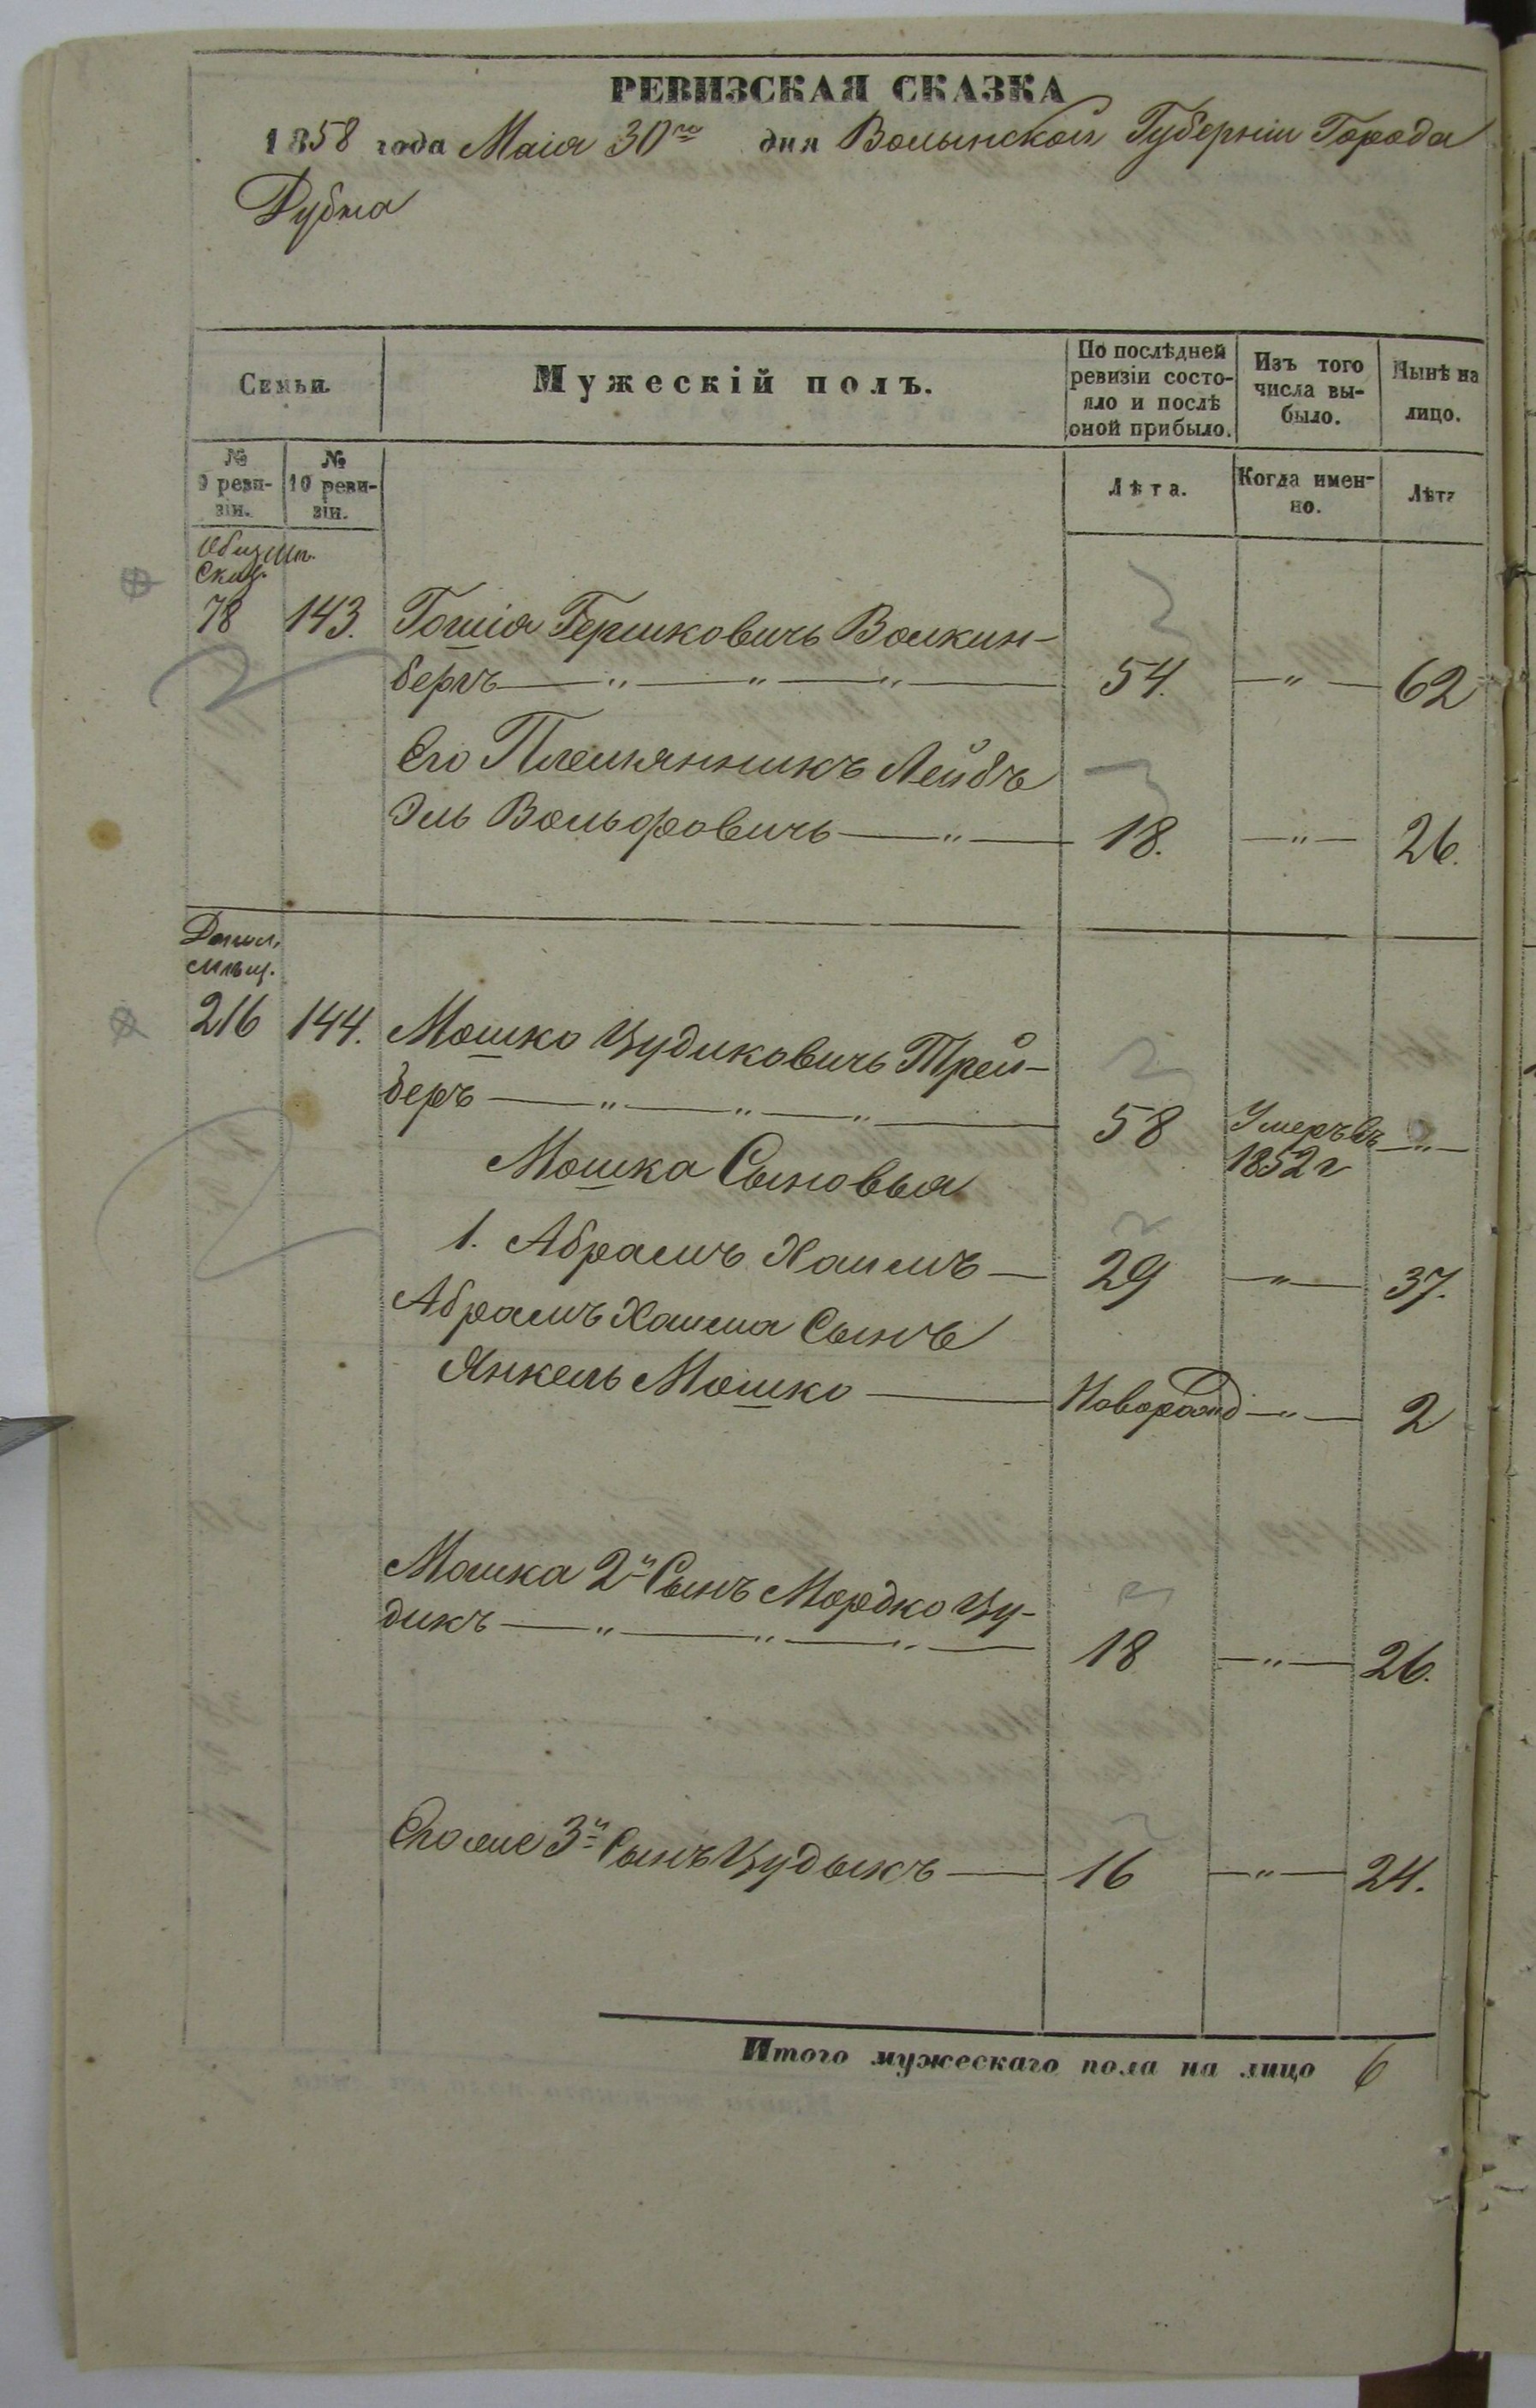 РЕВИЗСКАЯ СКАЗКА
1858 года Маія 30го дня Волынской Губерніи Города
Дубна
Семьи. Мужескій полъ. По послѣдней ревизіи состо-яло и послѣ оной прибыло. Изъ того числа вы-было. Нынѣ на лицо.
№ 9 реви-зіи. № 10 реви-зіи. Лѣта. Когда имен-но. Лѣта
Сказ.
78 143. Гошія Гершковичъ Волкин-
бергъ — " — " — " — 54. — " — 62
Его Племянникъ Лейбъ
Эль Вольфовичъ — " — 18. — " — 26.
Допол.
мѣщ.
216 144. Мошко Цудиковичъ Трей-
беръ — " — " — " — 58 Умеръ въ — " —
1852 г
Мошка Сыновья
1. Абрамъ Хаимъ — 29 — " — 37.
Абрамъ Хаима Сынъ
Янкель Мошко — Поворожд — " — 2
Мошка 2й Сынъ Мордко Цу-
дикъ — " — " — " — 18 — " — 26.
3й Сынъ Цудыкъ — 16 — " — 24.
Итого мужескаго пола на лицо 6